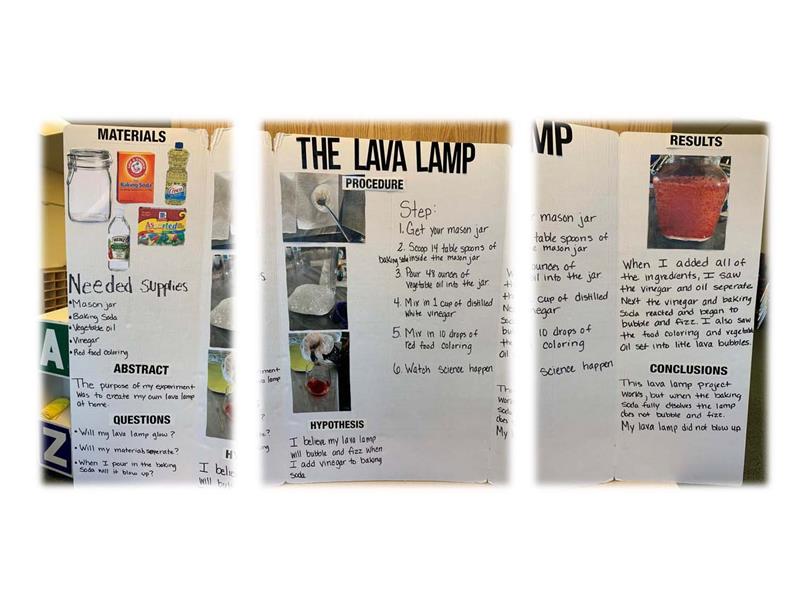 MATERIALS
ARM & HAMMER
Baking Soda
HEINZ
As
orted
Needed Supplies
• Mason jar
• Baking Soda
• Vegetable oil
• Vinegar
• Red food coloring
ABSTRACT
The purpose of my experiment
was to create my own lava lamp
at home.
QUESTIONS
• Will my lava lamp glow?
• Will my materials seperate?
• When I pour in the baking
Soda will it blow up?
H
I belie
will bub
A
Z
THE LAVA LAMP
PROCEDURE
Step:
1. Get your mason jar
2. Scoop 14 table spoons of
baking soda inside the mason jar
3. Pour 48 ounces of
Vegetable oil into the jar
4. Mix in 1 cup of distilled
White vinegar
5. Mix in 10 drops of
red food coloring
6. Watch science happen
HYPOTHESIS
I believe my lava lamp
will bubble and fizz when
I add vinegar to baking
soda
ment
lamp
My l
MP
mason jar
table spoons of
mason jar
ounces of
il into the jar
cup of distilled
negar
10 drops of
coloring
science happen
RESULTS
When I added all of
the ingredients, I saw
the vinegar and oil seperate.
Next the vinegar and baking
Soda reacted and began to
bubble and fizz. I also saw
the food coloring and vegetable
Oil set into little lava bubbles.
CONCLUSIONS
This lava lamp project
works, but when the baking
soda fully disolves the lamp
does not bubble and fizz.
My lava lamp did not blow up.